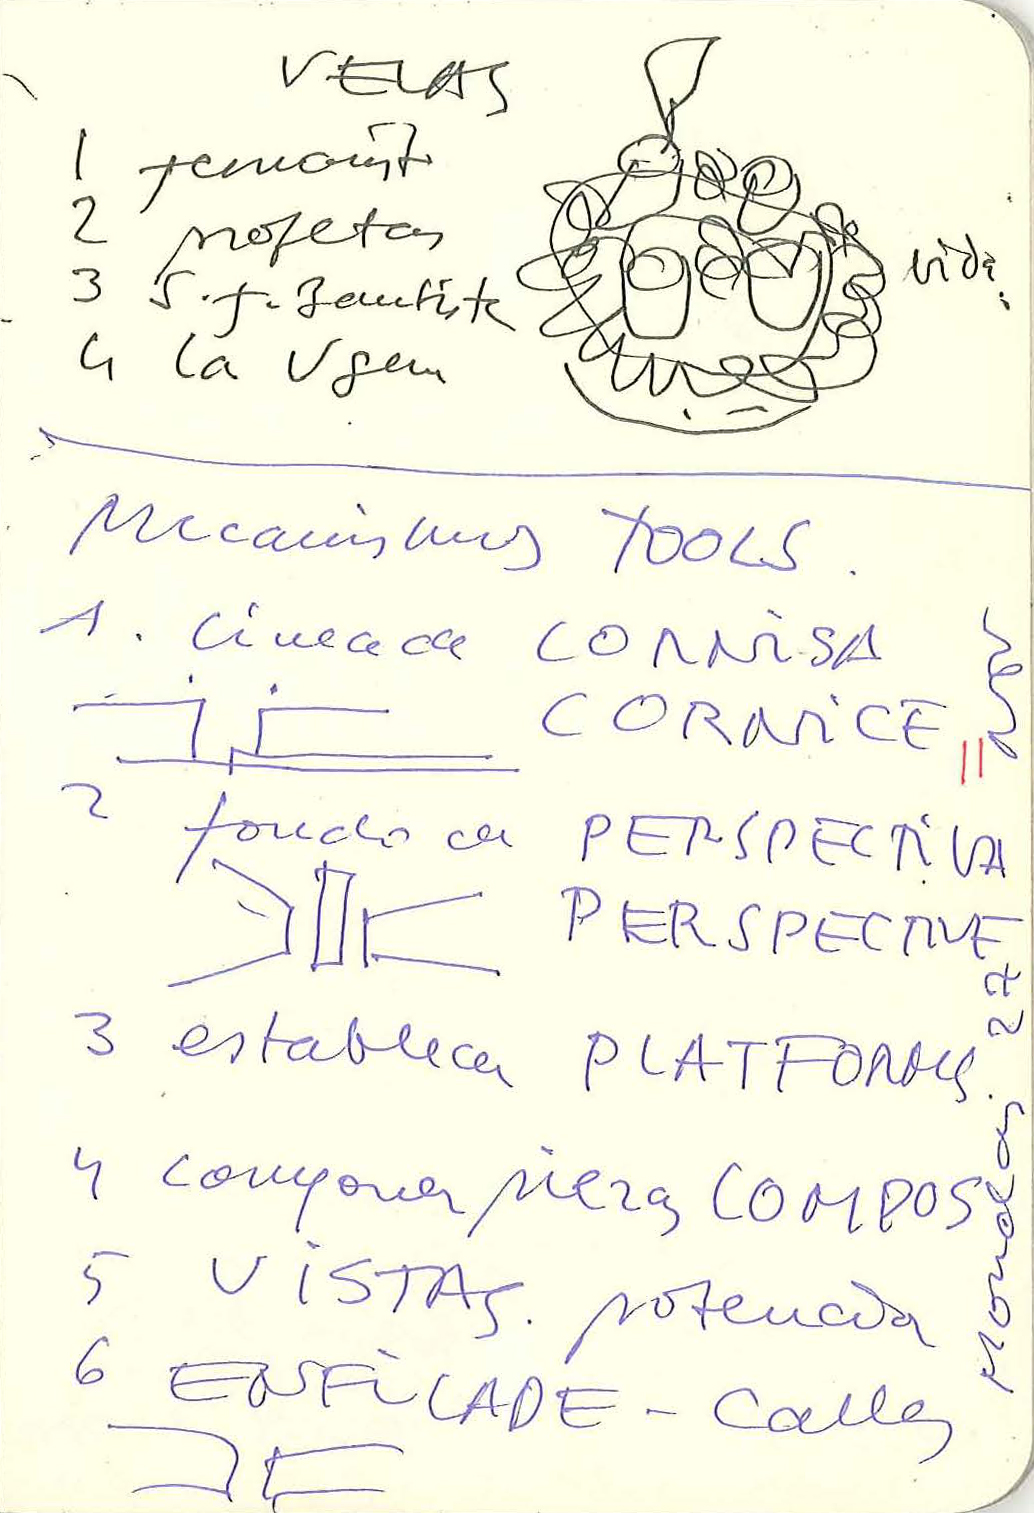 VELAS
1
2 profetas
3 S. J. Bautista
4 la Vgen
vida
Mecanismos TOOLS.
1. linea de CORNISA
CORNICE
2 fondo de PERSPECTIVA
PERSPECTIVE
3 establecer PLATFORMS.
4 componer piezas COMPOS
5 VISTAS. potenciar
6 ENFILADE - Calles
27